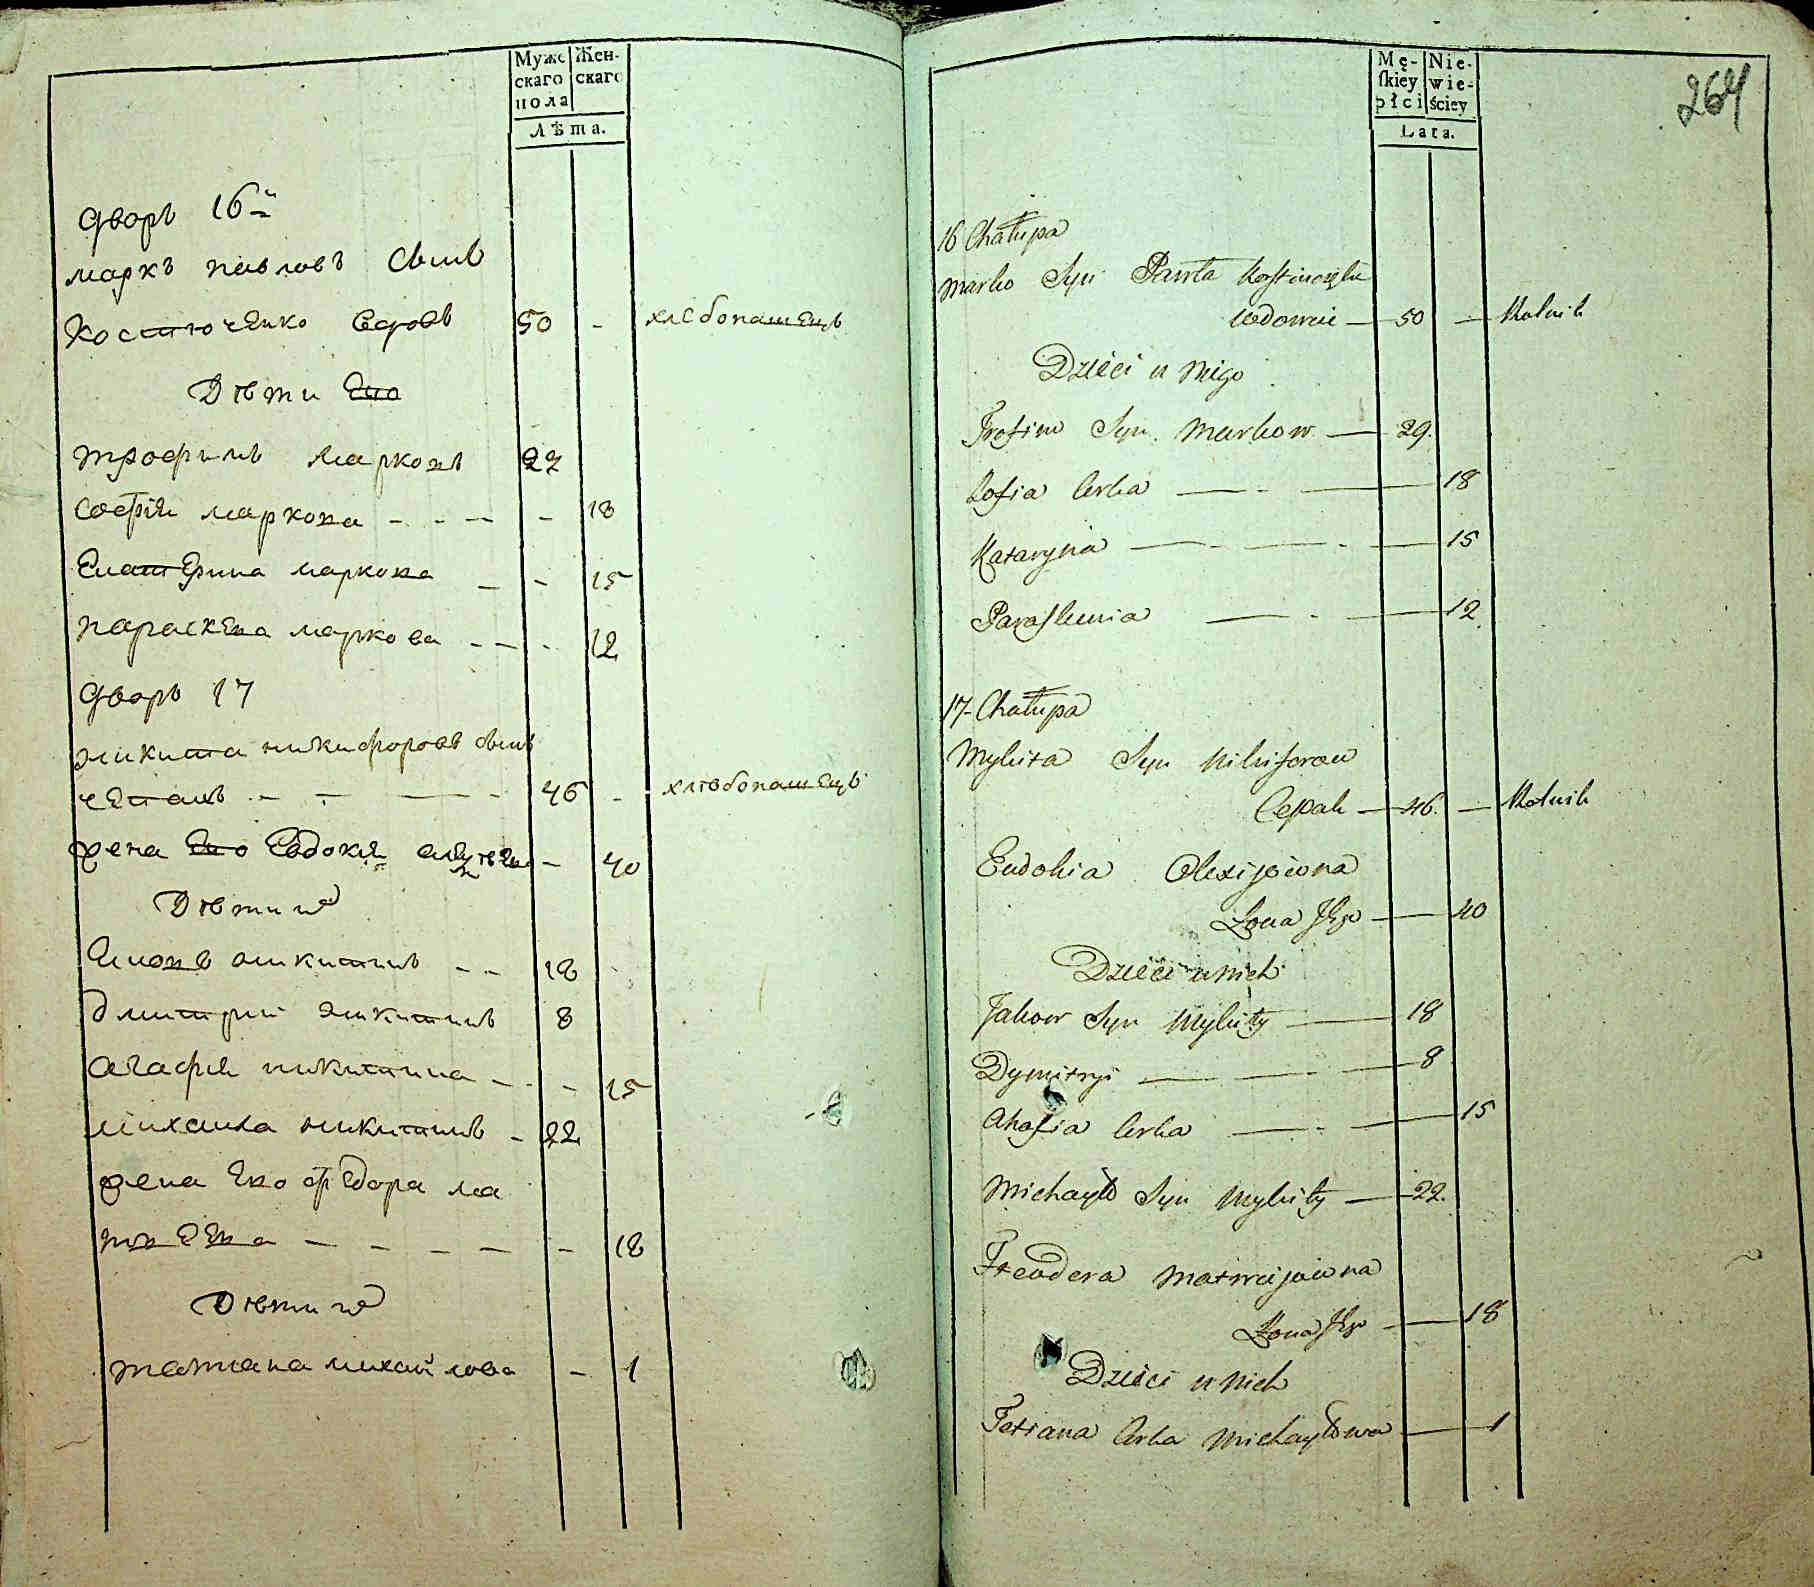 Мужескаго пола
Женскаго
Лѣта.
дворъ 16й
маркъ павловъ сынъ
костюченко вдовъ 50 - хлебопашецъ
Дѣти его
трофимъ марковъ 27
софія маркова - - - - 18
Екатерина маркова - - 15
параскева маркова - - - 12
дворъ 17
никита никифоровъ сынъ
- - - - 46 - хлѣбопашецъ
жена его Евдокия - 40
Дѣти их
никитинъ - - 18
дмитрий никитинъ 8
агафия никитина - - - 15
михаила никитинъ - 22
жена его федора ма
твеева - - - - - 18
Дѣти их
татиана михайлова - 1
Mę-skiey płci
Nie-wie-ściey
Lata.
264
16 Chałupa
Marko Syn Pawła
wdowiec — 50 — Rolnik
Dzieci u niego
Trofim Syn Markow — 29.
Zofia Corka — - — 18
Kataryna — - — - — 15
Paraskewia — - — 12.
17- Chałupa
Mykita Syn Nikiforow
Cepak — 46. — Rolnik
Eudokia Olexijowna
Zona Jego — 40
Dzieci u nich
Jakow Syn Mykity — 18
Dymitryi — - — 8
Ahafia Corka — - — 15
Michayło Syn Mykity — 22.
Teodora Matwiejowna
Zona Jego — 18
Dzieci u nich
Tatiana Corka Michayłowa — 1